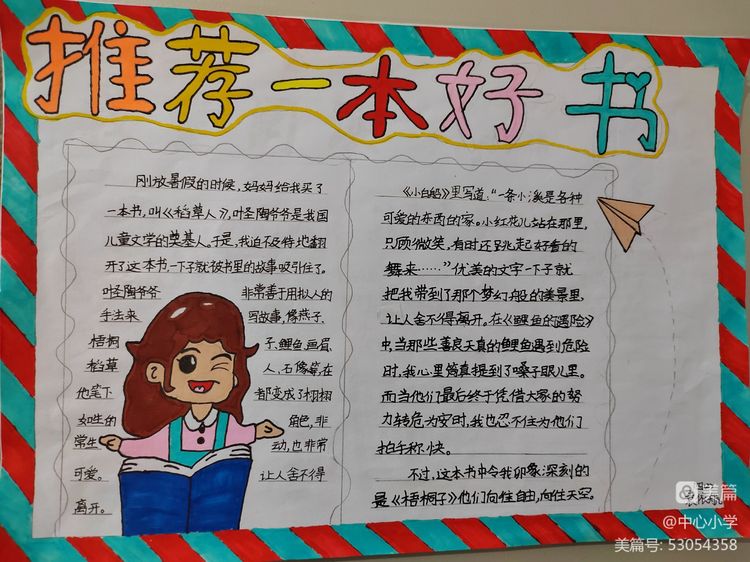 推荐一本好书
刚放暑假的时候，妈妈给我买了
一本书，叫《稻草人》，叶圣陶爷爷是我国
儿童文学的奠基人。于是，我迫不及待地翻
开了这本书，一下子就被书里的故事吸引住了。
叶圣陶爷爷 非常善于用拟人的
手法来 写故事，像燕子、
梧桐 子、鲤鱼、画眉、
稻草 人、石像等，在
他笔下 都变成了栩栩
如生的 角色，非
常生 动，也非常
可爱。 让人舍不得
离开。
《小白船》里写道："一条小溪是各种
可爱的东西的家。小红花儿站在那里，
只顾微笑，有时还跳起好看的
舞来……"优美的文字一下子就
把我带到了那个梦幻般的美景里，
让人舍不得离开。在《鲤鱼的遇险》
中，当那些善良天真的鲤鱼遇到危险
时，我心里简直提到了嗓子眼儿里。
而当他们最后终于凭借大家的努
力转危为安时，我也忍不住为他们
拍手称快。
不过，这本书中令我印象深刻的
是《梧桐子》他们向往自由，向往天空。
美篇
@中心小学
美篇号：53054358